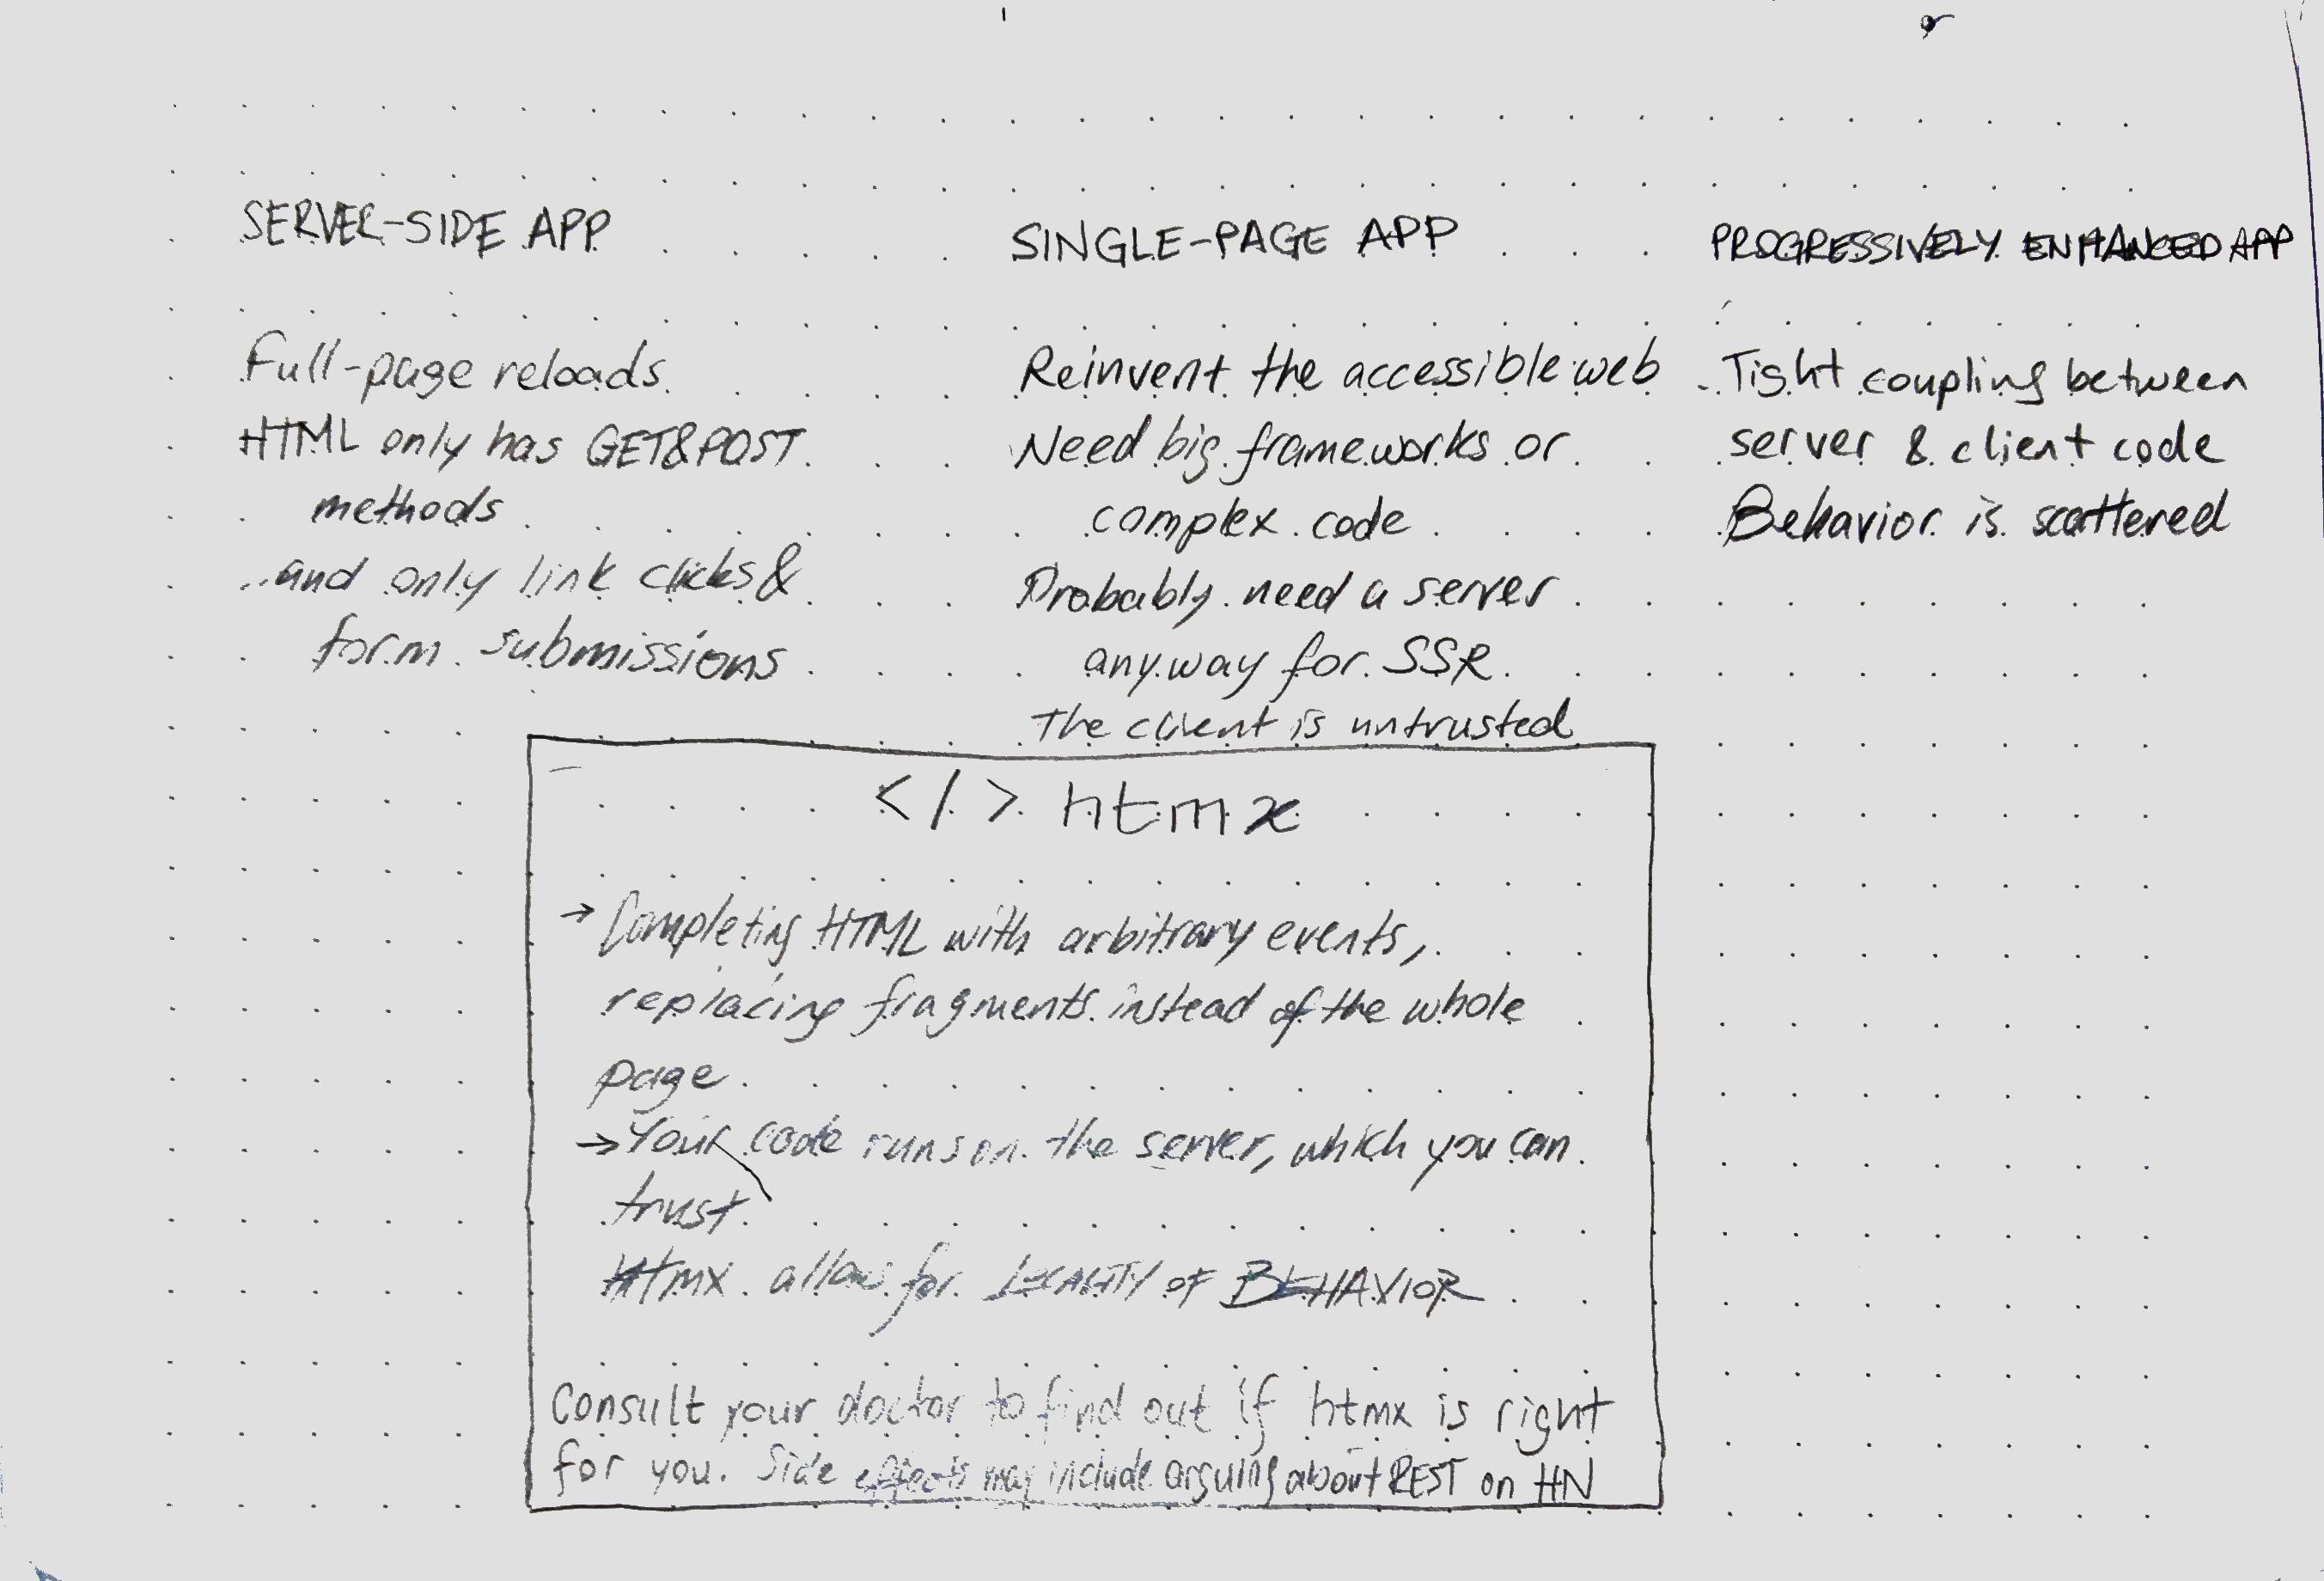 SERVER-SIDE APP
Full-page reloads
HTML only has GET&POST
methods
..and only link clicks &
form submissions
SINGLE-PAGE APP
Reinvent the accessible web
Need big frameworks or
complex code
Probably need a server
anyway for SSR
The client is untrusted
PROGRESSIVELY ENHANCED APP
Tight coupling between
server & client code
Behavior is scattered
</> htmx
→ Completing HTML with arbitrary events,
replacing fragments instead of the whole
page.
→ Your code runs on the server, which you can
trust.
Htmx allows for LOCALITY OF BEHAVIOR
Consult your doctor to find out if htmx is right
for you. Side effects may include arguing about REST on HN